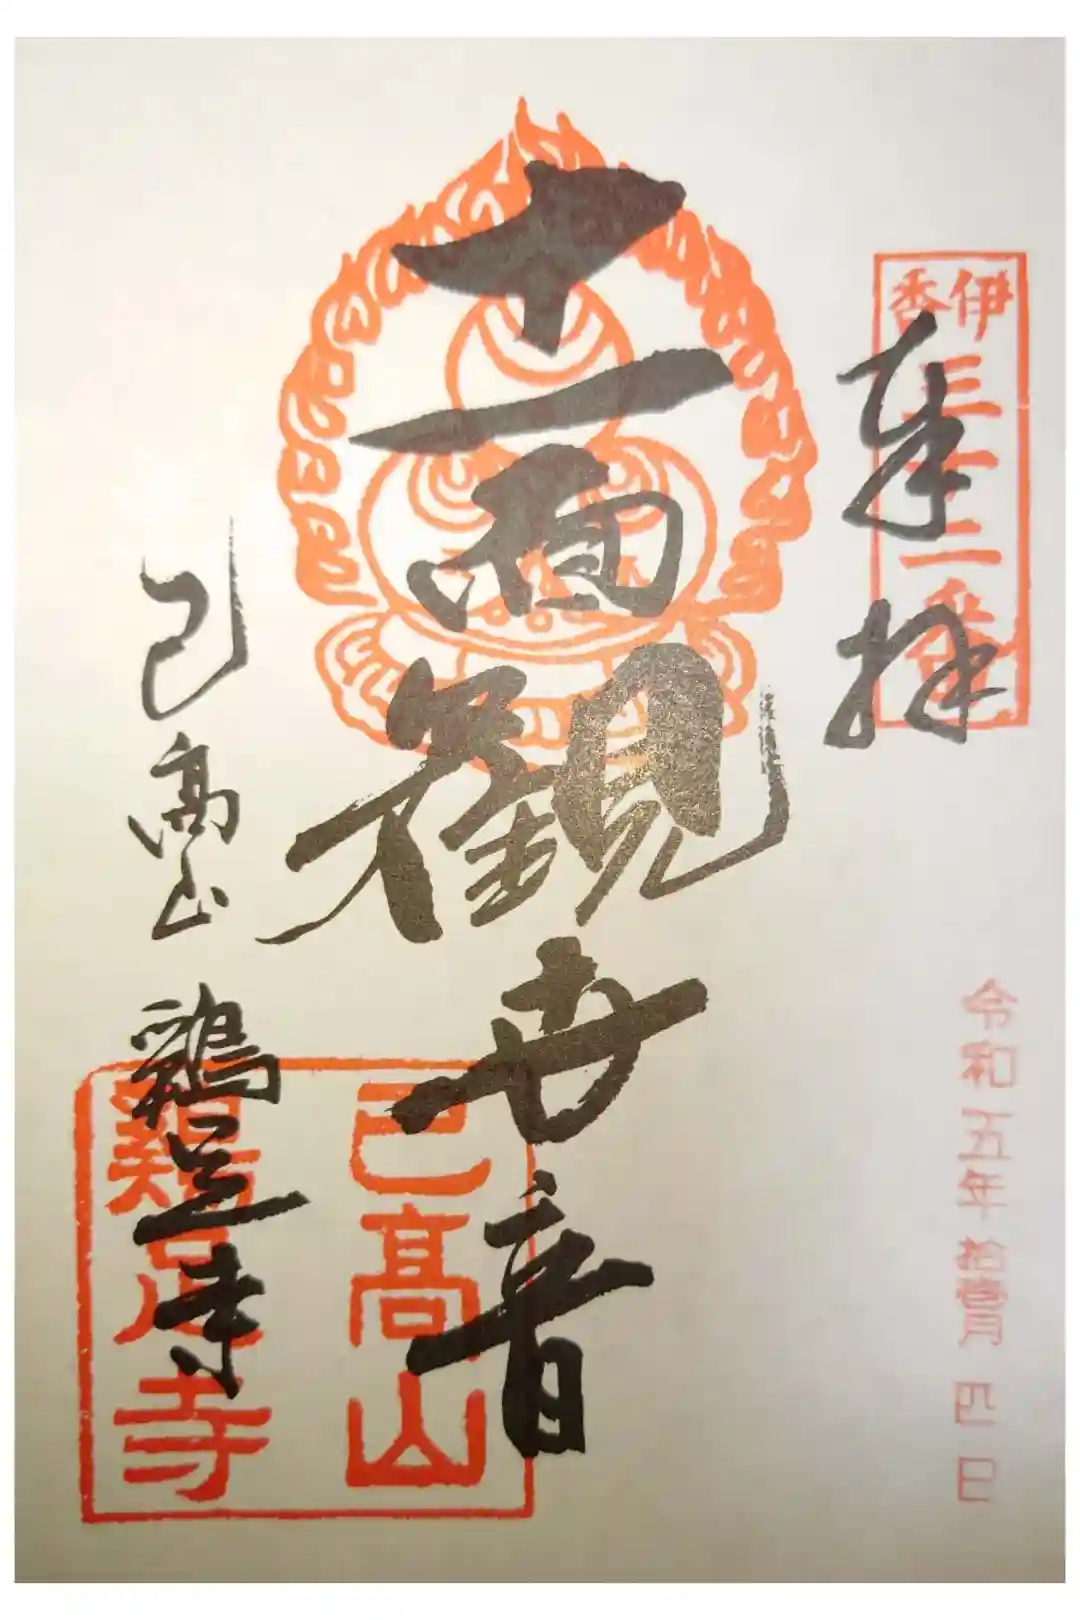 伊香三十三番會
奉拝
令和五年拾壹月四日
十一面觀世音
己高山
鶏足寺
己高山
鶏足寺